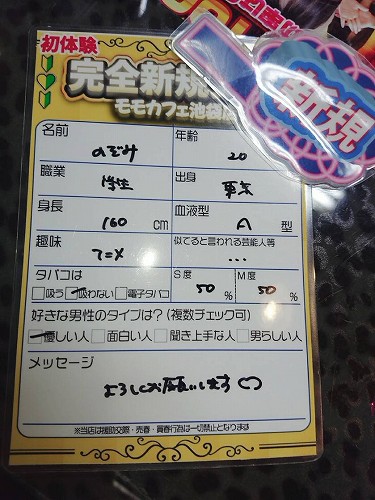 初体験
完全新規
モモカフェ池袋
新規
名前 のぞみ
年齢 20
職業 学生
出身 東京
身長 160 cm
血液型 A 型
趣味 アニメ
似てると言われる芸能人等 ...
タバコは
□吸う □吸わない □電子タバコ
S度 50 %
M度 50 %
好きな男性のタイプは?(複数チェック可)
□優しい人 □面白い人 □聞き上手な人 □男らしい人
メッセージ
よろしくお願いします♡
※当店は援助交際・売春・買春行為は一切禁止となります